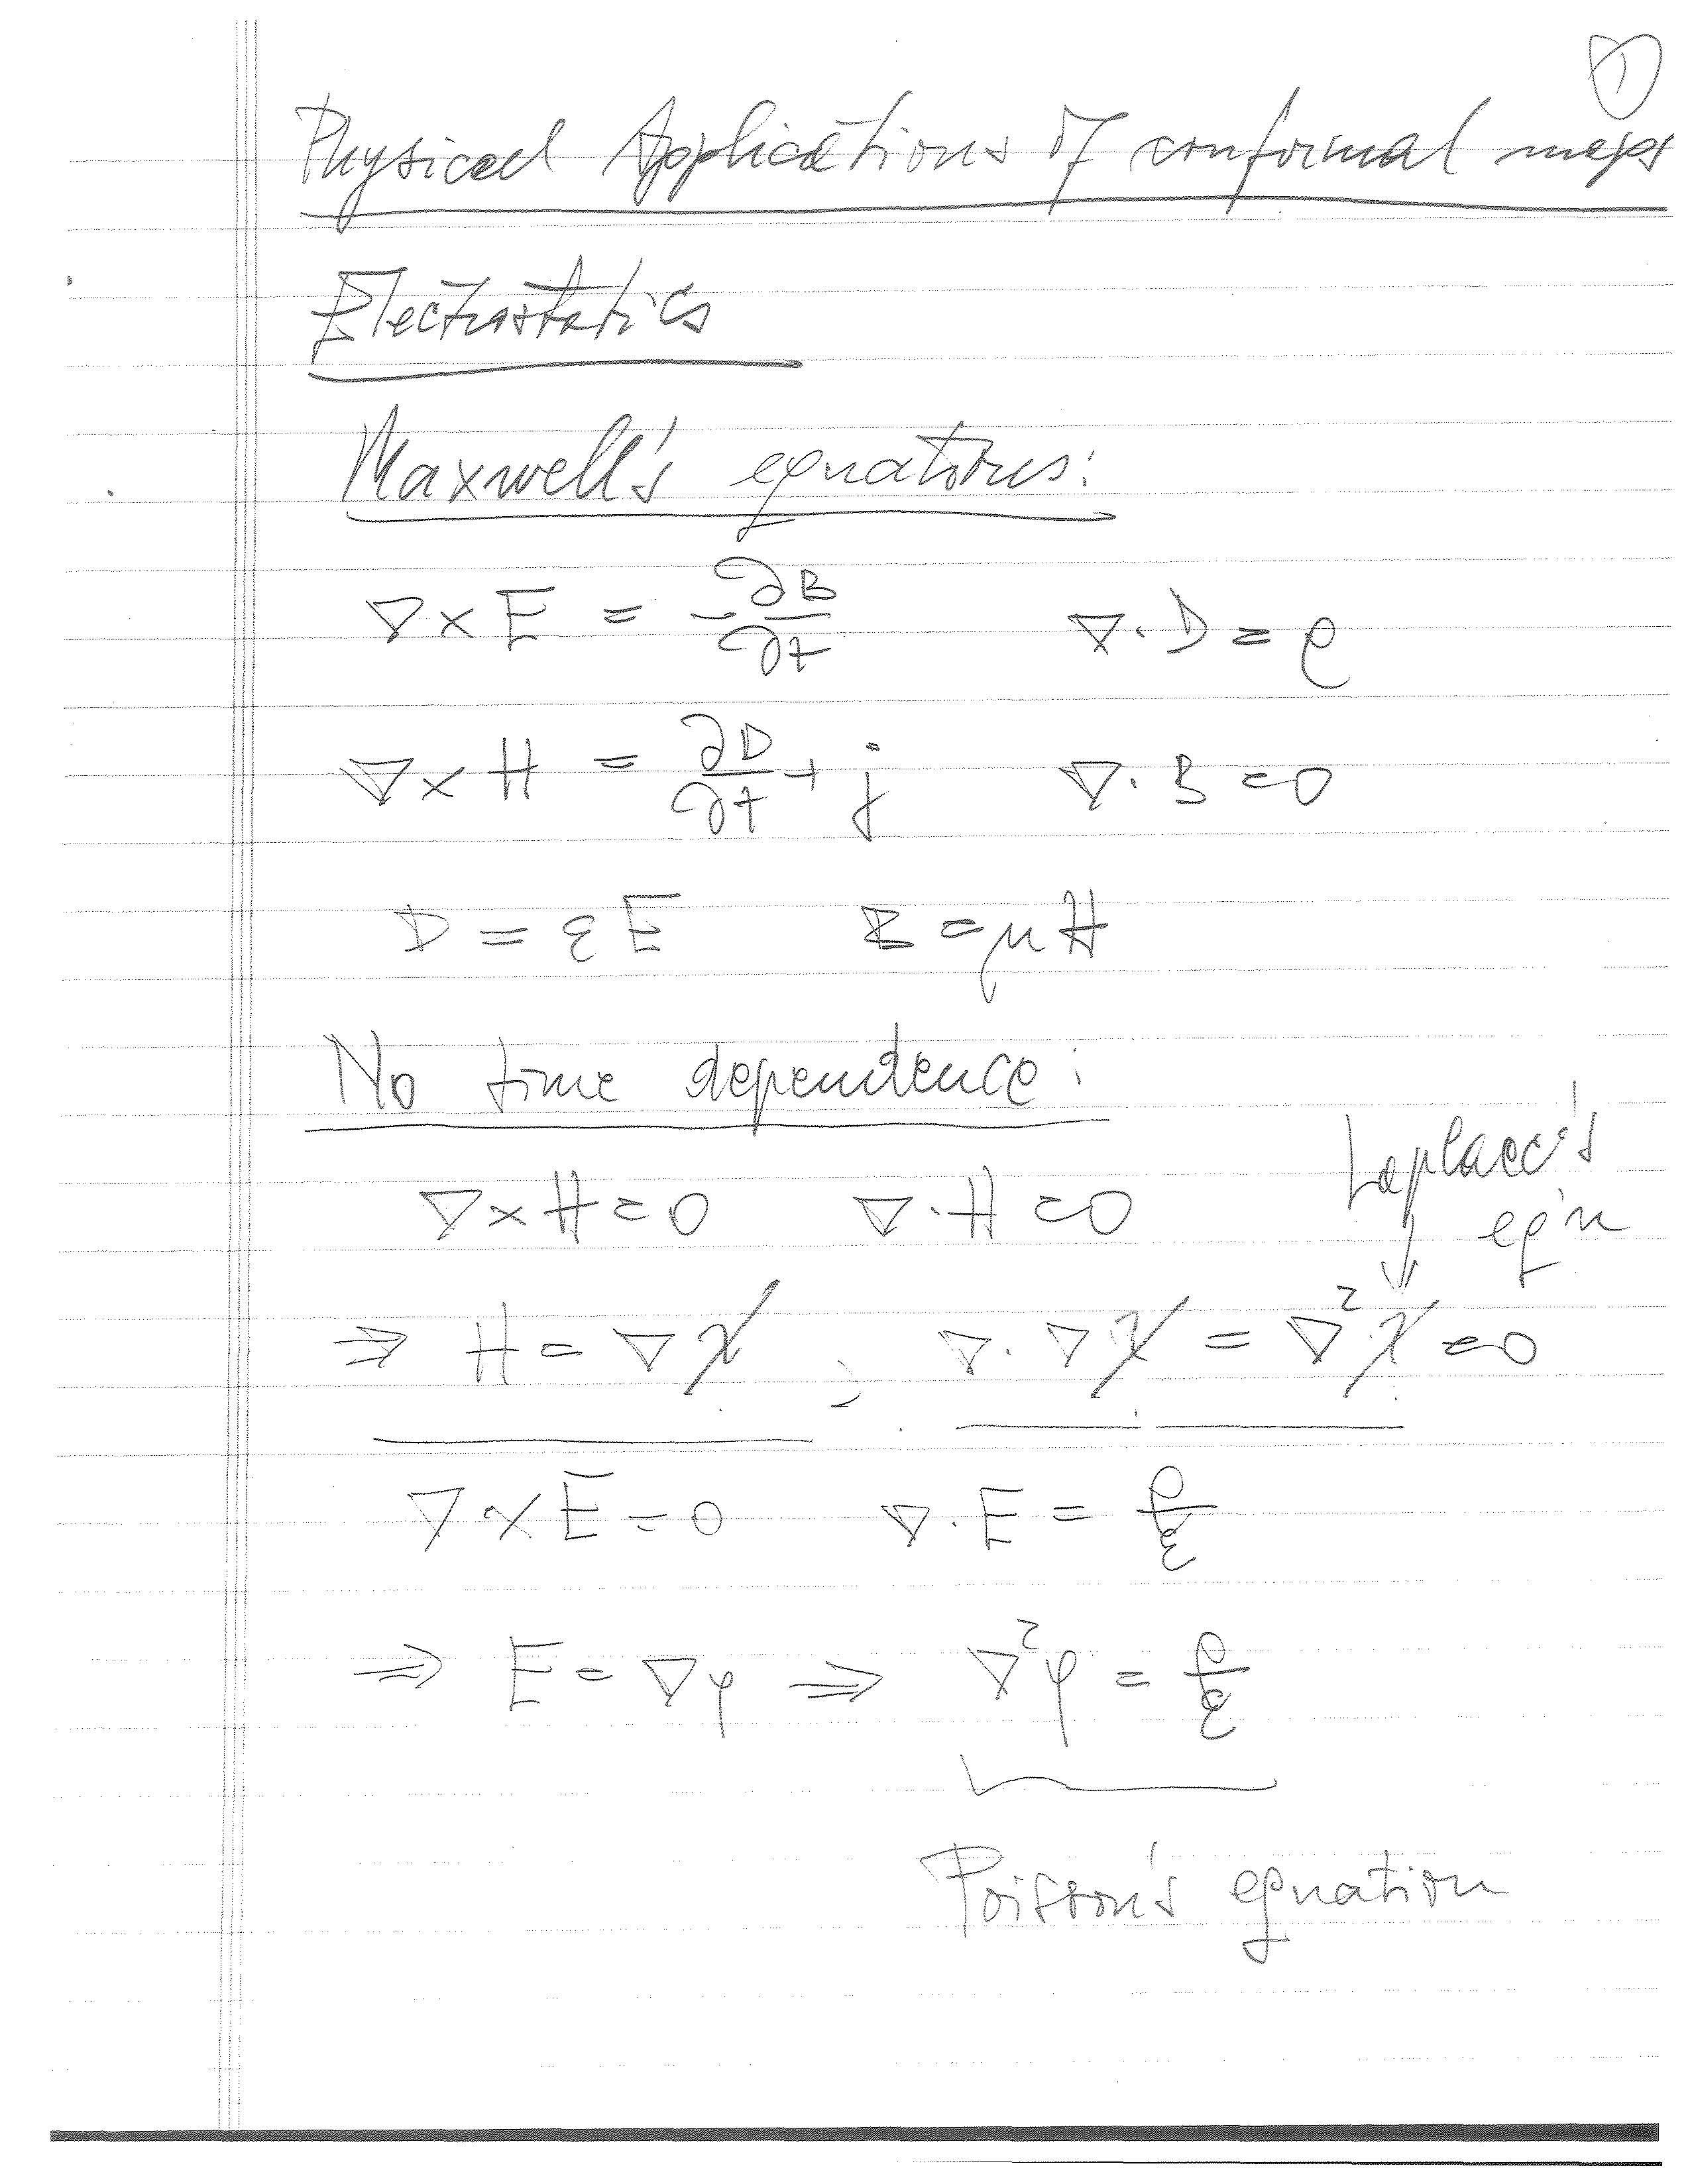 1
Physical Applications of conformal maps
Electrostatics
Maxwell's equations:
∇×E = -∂B/∂t    ∇·D = ρ
∇×H = ∂D/∂t + j    ∇·B = 0
D = εE    B = μH
No time dependence:
Laplace's
eq'n
∇×H = 0    ∇·H = 0
⇒ H = ∇χ ; ∇·∇χ = ∇²χ = 0
∇×E = 0    ∇·E = ρ/ε
⇒ E = ∇φ ⇒ ∇²φ = ρ/ε
Poisson's equation